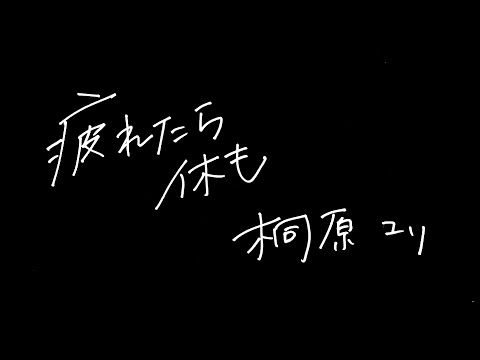 疲れたら
休も
桐原ユリ